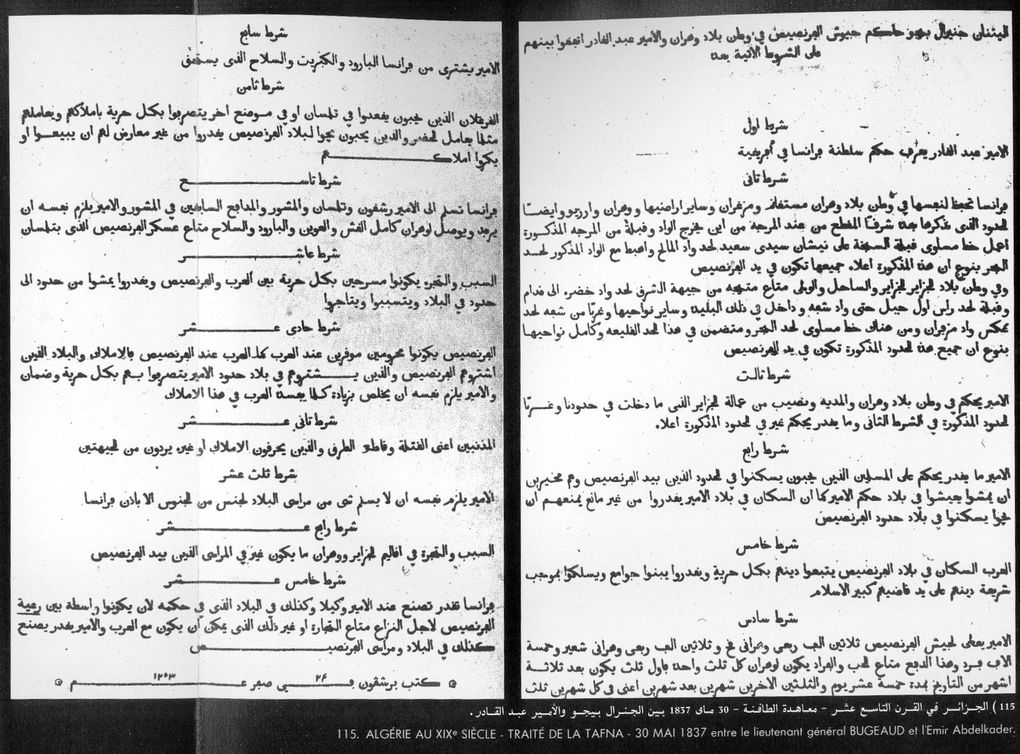 الليثنان جنيرال بيجو حاكم جيوش الفرنصيص في وطن بلاد وهران والامير عبد القادر اتفقوا بينهم
على الشروط الاتية بعده
شرط اول
الامير عبد القادر يعرف حكم سلطنة فرانسا في افريقية
شرط ثانى
فرانسا تحفظ لنفسها في وطن بلاد وهران مستغانم ومزغران وساير اراضيها ووهران وارزيو وايضا
الحدود الذى نذكرها بعده شرقًا المقطع من عند المرجه من اين يخرج الواد وقبلةً من المرجه المذكورة
اعمل خط مساوى قبلة السبخة على نيشان سيدى سعيد لحد واد المالح واهبط مع الواد المذكور لحد
البحر بنوع ان هذه المذكورة اعلاه جميعها تكون في يد الفرنصيص
وفي وطن بلاد الجزاير الجزاير والساحل والوطى متاع متيجه من جيهة الشرق لحد واد خضره الى قدام
وقبلة لحد راس اول جبل حتى واد شفه وداخل في ذلك البليدة وساير نواحيها وغربًا من شفه لحد
مزفران ومن هناك خط مساوى لحد البحر ومتضمن في هذا الحد القليعه وكامل نواحيها
بنوع ان جميع هذه الحدود المذكورة تكون في يد الفرنصيص
شرط ثالث
الامير يحكم في وطن بلاد وهران والمديه ونصيب من عمالة الجزاير التى ما دخلت في حدودنا وغربًا
الحدود المذكورة في الشرط الثانى وما يقدر يحكم غير في الحدود المذكورة اعلاه.
شرط رابع
الامير ما يقدر يحكم على المسلمين الذين يحبون يسكنوا في الحدود الذين بيد الفرنصيص وهم مخيرين
ان يمشوا يعيشوا في بلاد حكم الامير كما ان السكان في بلاد الامير يقدروا من غير مانع يمنعهم ان
يجوا يسكنوا في بلاد حدود الفرنصيص
شرط خامس
العرب السكان في بلاد الفرنصيص يتبعوا دينهم بكل حرية ويقدروا يبنوا جوامع ويسلكوا بموجب
شريعة دينهم على يد قاضيهم كبير الاسلام
شرط سادس
الامير يعطى لجيش الفرنصيص ثلاثين الف ربعى وهرانى قمح وثلاثين الف ربعى وهرانى شعير وخمسة
الاف فرد وهذا الدفع متاع الحب والفراد يكون لوهران كل ثلث واحده فاول ثلث يكون بعد ثلاثة
اشهر من التاريخ بمدة خمسة عشر يوم والثلثين الاخرين شهرين بعد شهرين اعنى في كل شهرين ثلث
شرط سابع
الامير يشترى من فرانسا البارود والكبريت والسلاح الذى يستحق
شرط ثامن
القرغلان الذين يحبون يقعدوا في تلمسان او في موضع اخر يتصرفوا بكل حرية باملاكهم ويعاملهم
مثلما يعامل الحضر والذين يحبون يجوا لبلاد الفرنصيص يقدروا من غير معارض لهم ان يبيعوا او
يكروا املاكهم
شرط تاسع
فرانسا تسلم الى الامير رشقون وتلمسان والمشور والمدافع السابقين في المشور والامير يلزم نفسه ان
يرفد ويوصل لوهران كامل القش والعوين والبارود والسلاح متاع عسكر الفرنصيص الذى بتلمسان
شرط عاشر
السبب والتجره يكونوا مسرحين بكل حرية بين العرب والفرنصيص ويقدروا يمشوا من حدود الى
حدود في البلاد ويتسببوا ويتاجروا
شرط حادى عشر
الفرنصيص يكونوا محرومين موقرين عند العرب كما العرب عند الفرنصيص والاملاك والبلاد الذين
اشتروهم الفرنصيص والذين يشتروهم في بلاد حدود الامير يتصرفوا بهم بكل حرية وضمان
والامير يلزم نفسه ان يخلص بزيادة كلما يفسده العرب في هذا الاملاك
شرط ثانى عشر
المذنبين اعنى القتلة وقاطع الطرق والذين يحرقون الاملاك او غير يردون من الجيهتين
شرط ثلث عشر
الامير يلزم نفسه ان لا يسلم شى من مراسى البلاد لجنس من الجنوس الا باذن فرانسا
شرط رابع عشر
السبب والتجرة في اقاليم الجزاير ووهران ما يكون غير في المراسى الذين بيد الفرنصيص
شرط خامس عشر
فرانسا تقدر تصنع عند الامير وكيلا وكذلك في البلاد الذى في حكمه لان يكونوا واسطة بين رعية
الفرنصيص لاجل النزاع متاع التجارة او غير ذلك الذى يمكن ان يكون مع العرب والامير يقدر يصنع
كذلك في البلاد ومراسى الفرنصيص
كتب برشقون في ٢٤ صفر عام ١٢٥٣
115 ) الجزائر في القرن التاسع عشر - معاهدة الطافنة - 30 ماى 1837 بين الجنرال بيجو والأمير عبد القادر .
115. ALGÉRIE AU XIXe SIÈCLE - TRAITÉ DE LA TAFNA - 30 MAI 1837 entre le lieutenant général BUGEAUD et l'Emir Abdelkader.